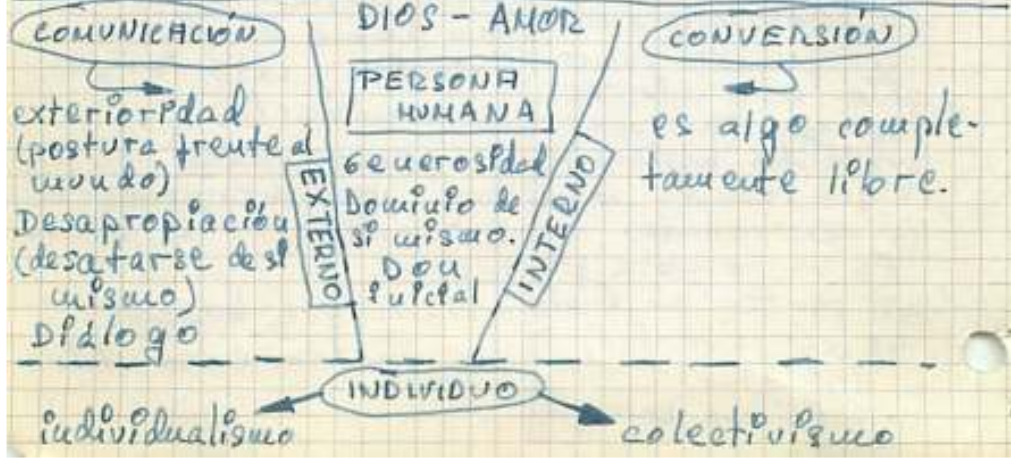 COMUNICACIÓN
exterioridad
(postura frente al
mundo)
Desapropiación
(desatarse de sí
mismo)
Diálogo
EXTERNO
DIOS - AMOR
PERSONA
HUMANA
Generosidad
Dominio de
sí mismo.
Don
inicial
INTERNO
CONVERSIÓN
es algo comple-
tamente libre.
INDIVIDUO
individualismo
colectivismo